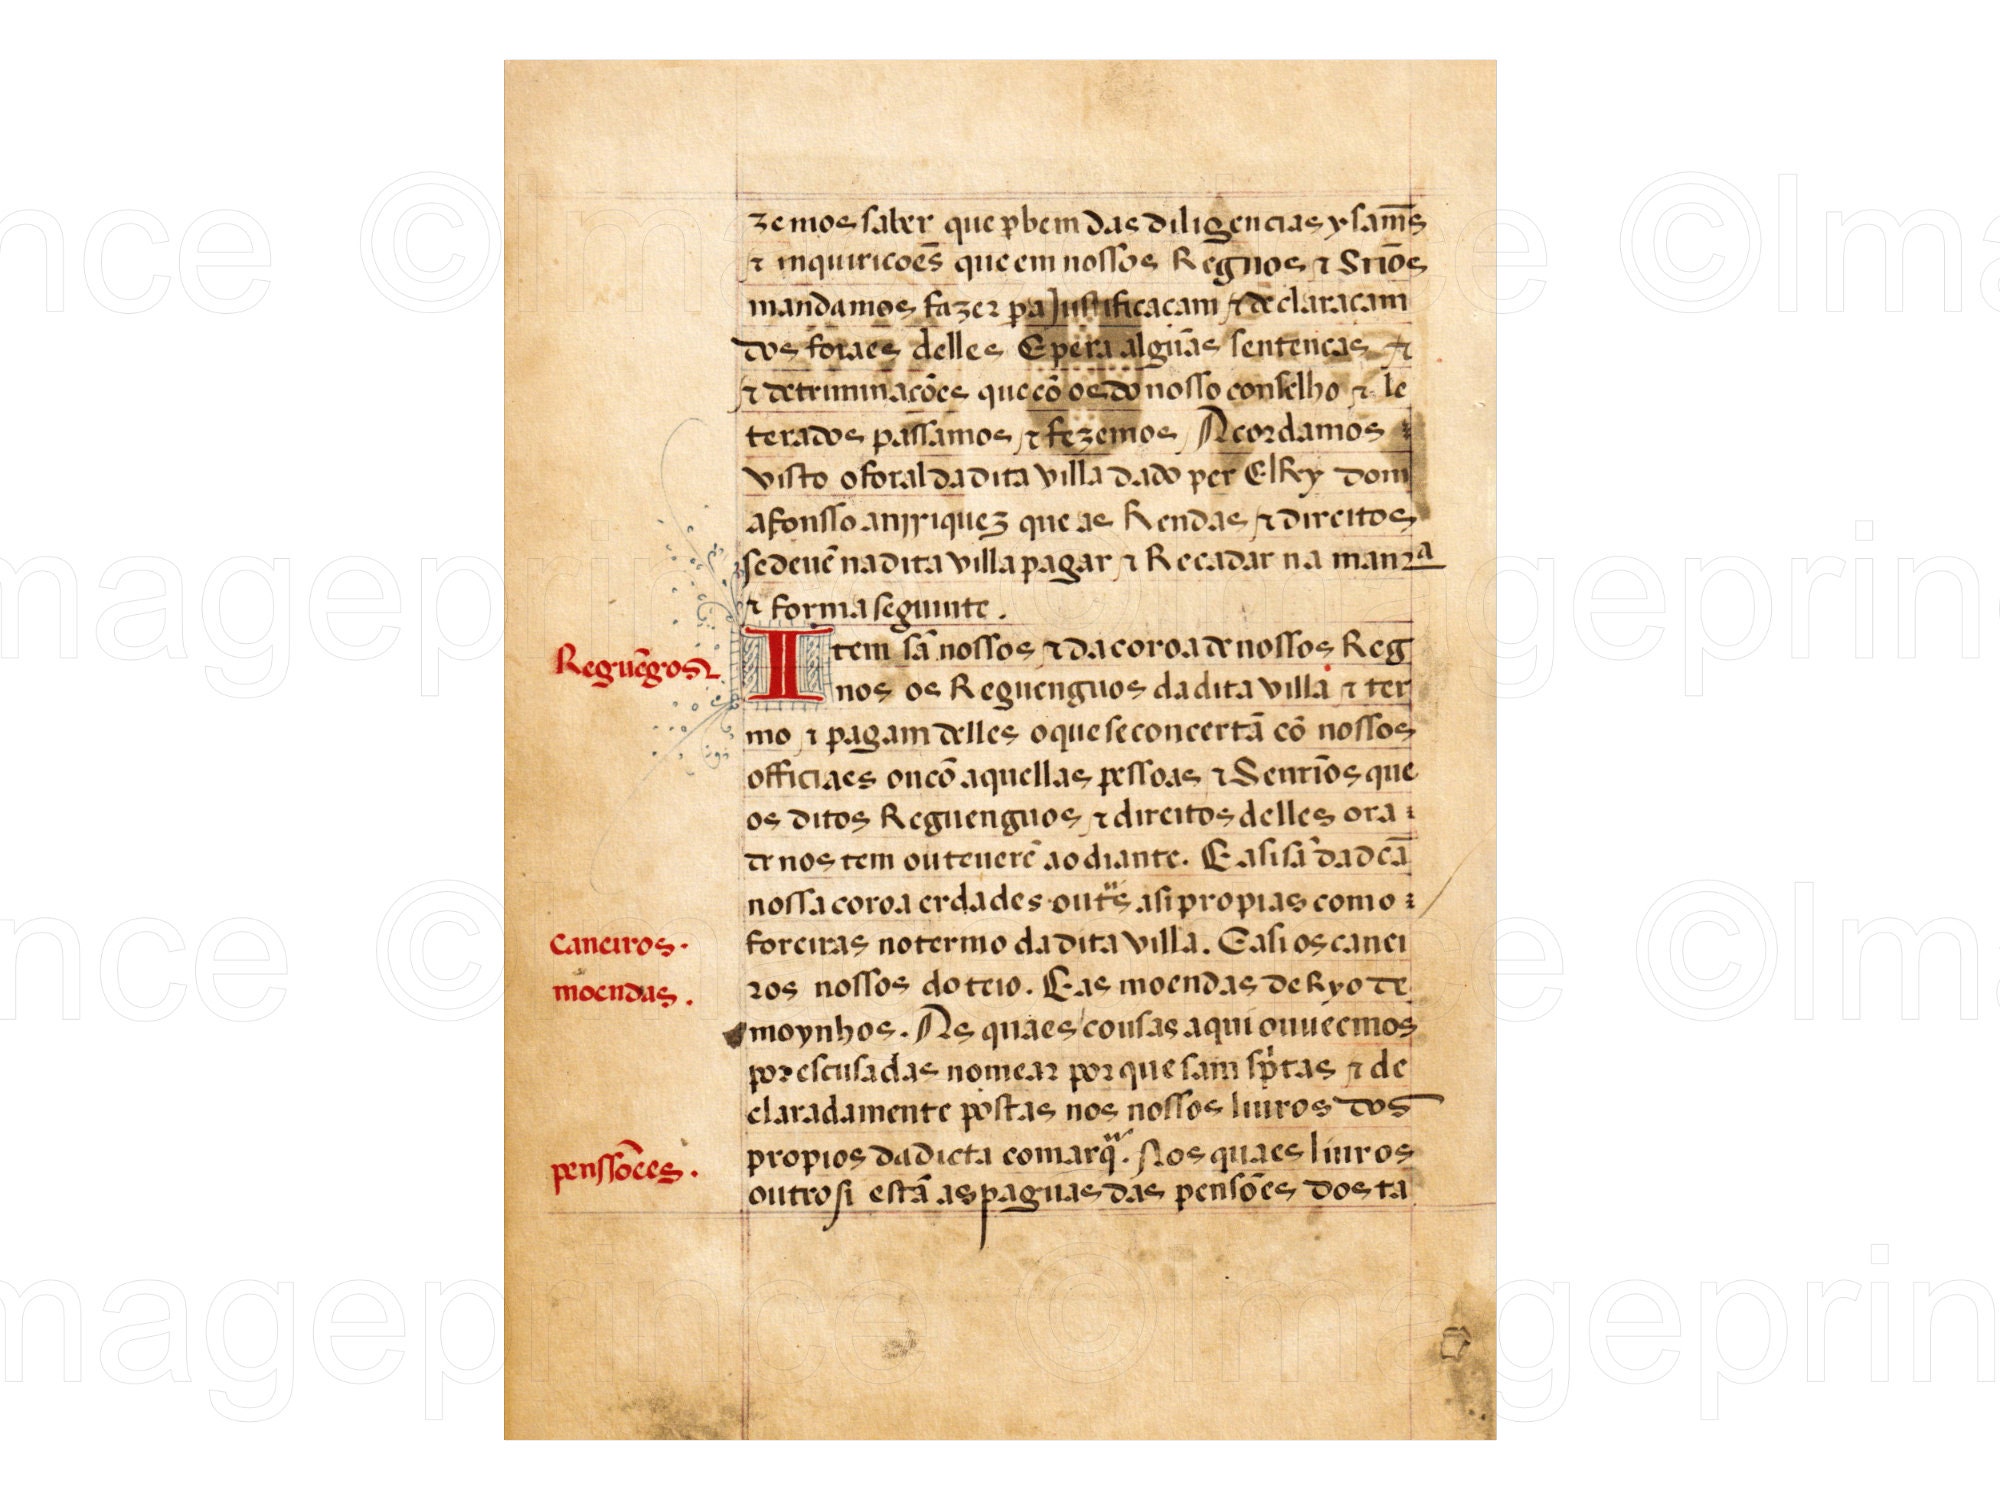 zemos saber que p̱ bem das diligencias ysam̃s
⁊ inquiricoẽs que em nossos Regnos ⁊ Sriõs
mandamos fazer pa Justificaçam ⁊ declaracam
dos foraes delles E pera algũas sentencas ⁊
⁊ detriminacões que cõ os do nosso conselho ⁊ le
terados passamos ⁊ fezemos Acordamos
visto o foral da dita villa dado per ElRey dom
afonsso anrriquez que as Rendas ⁊ direitos
se deuẽ na dita villa pagar ⁊ Recadar na manrª
⁊ forma seguinte.
Item sã nossos ⁊ da coroa de nossos Reg
Reguẽgos
nos os Reguenguos da dita villa ⁊ ter
mo ⁊ pagam delles o que se concertã cõ nossos
officiaes ou cõ aquellas pessoas ⁊ Senriõs que
os ditos Reguenguos ⁊ direitos delles ora
de nos tem ou teuerẽ ao diante. E asi sã da dcã
nossa coroa erdades outs asi propias como
Caneiros.
foreiras no termo da dita villa. E asi os canei
moendas.
ros nossos do teio. E as moendas de Ryo de
moynhos. As quaes cousas aqui ouueemos
por escusadas nomear por que sam sp̃tas ⁊ de
claradamente postas nos nossos liuros dos
penssõees.
propios da dicta comarq̃. Nos quaes liuros
outrosi estã as paguas das pensões dos ta
©Imageprince